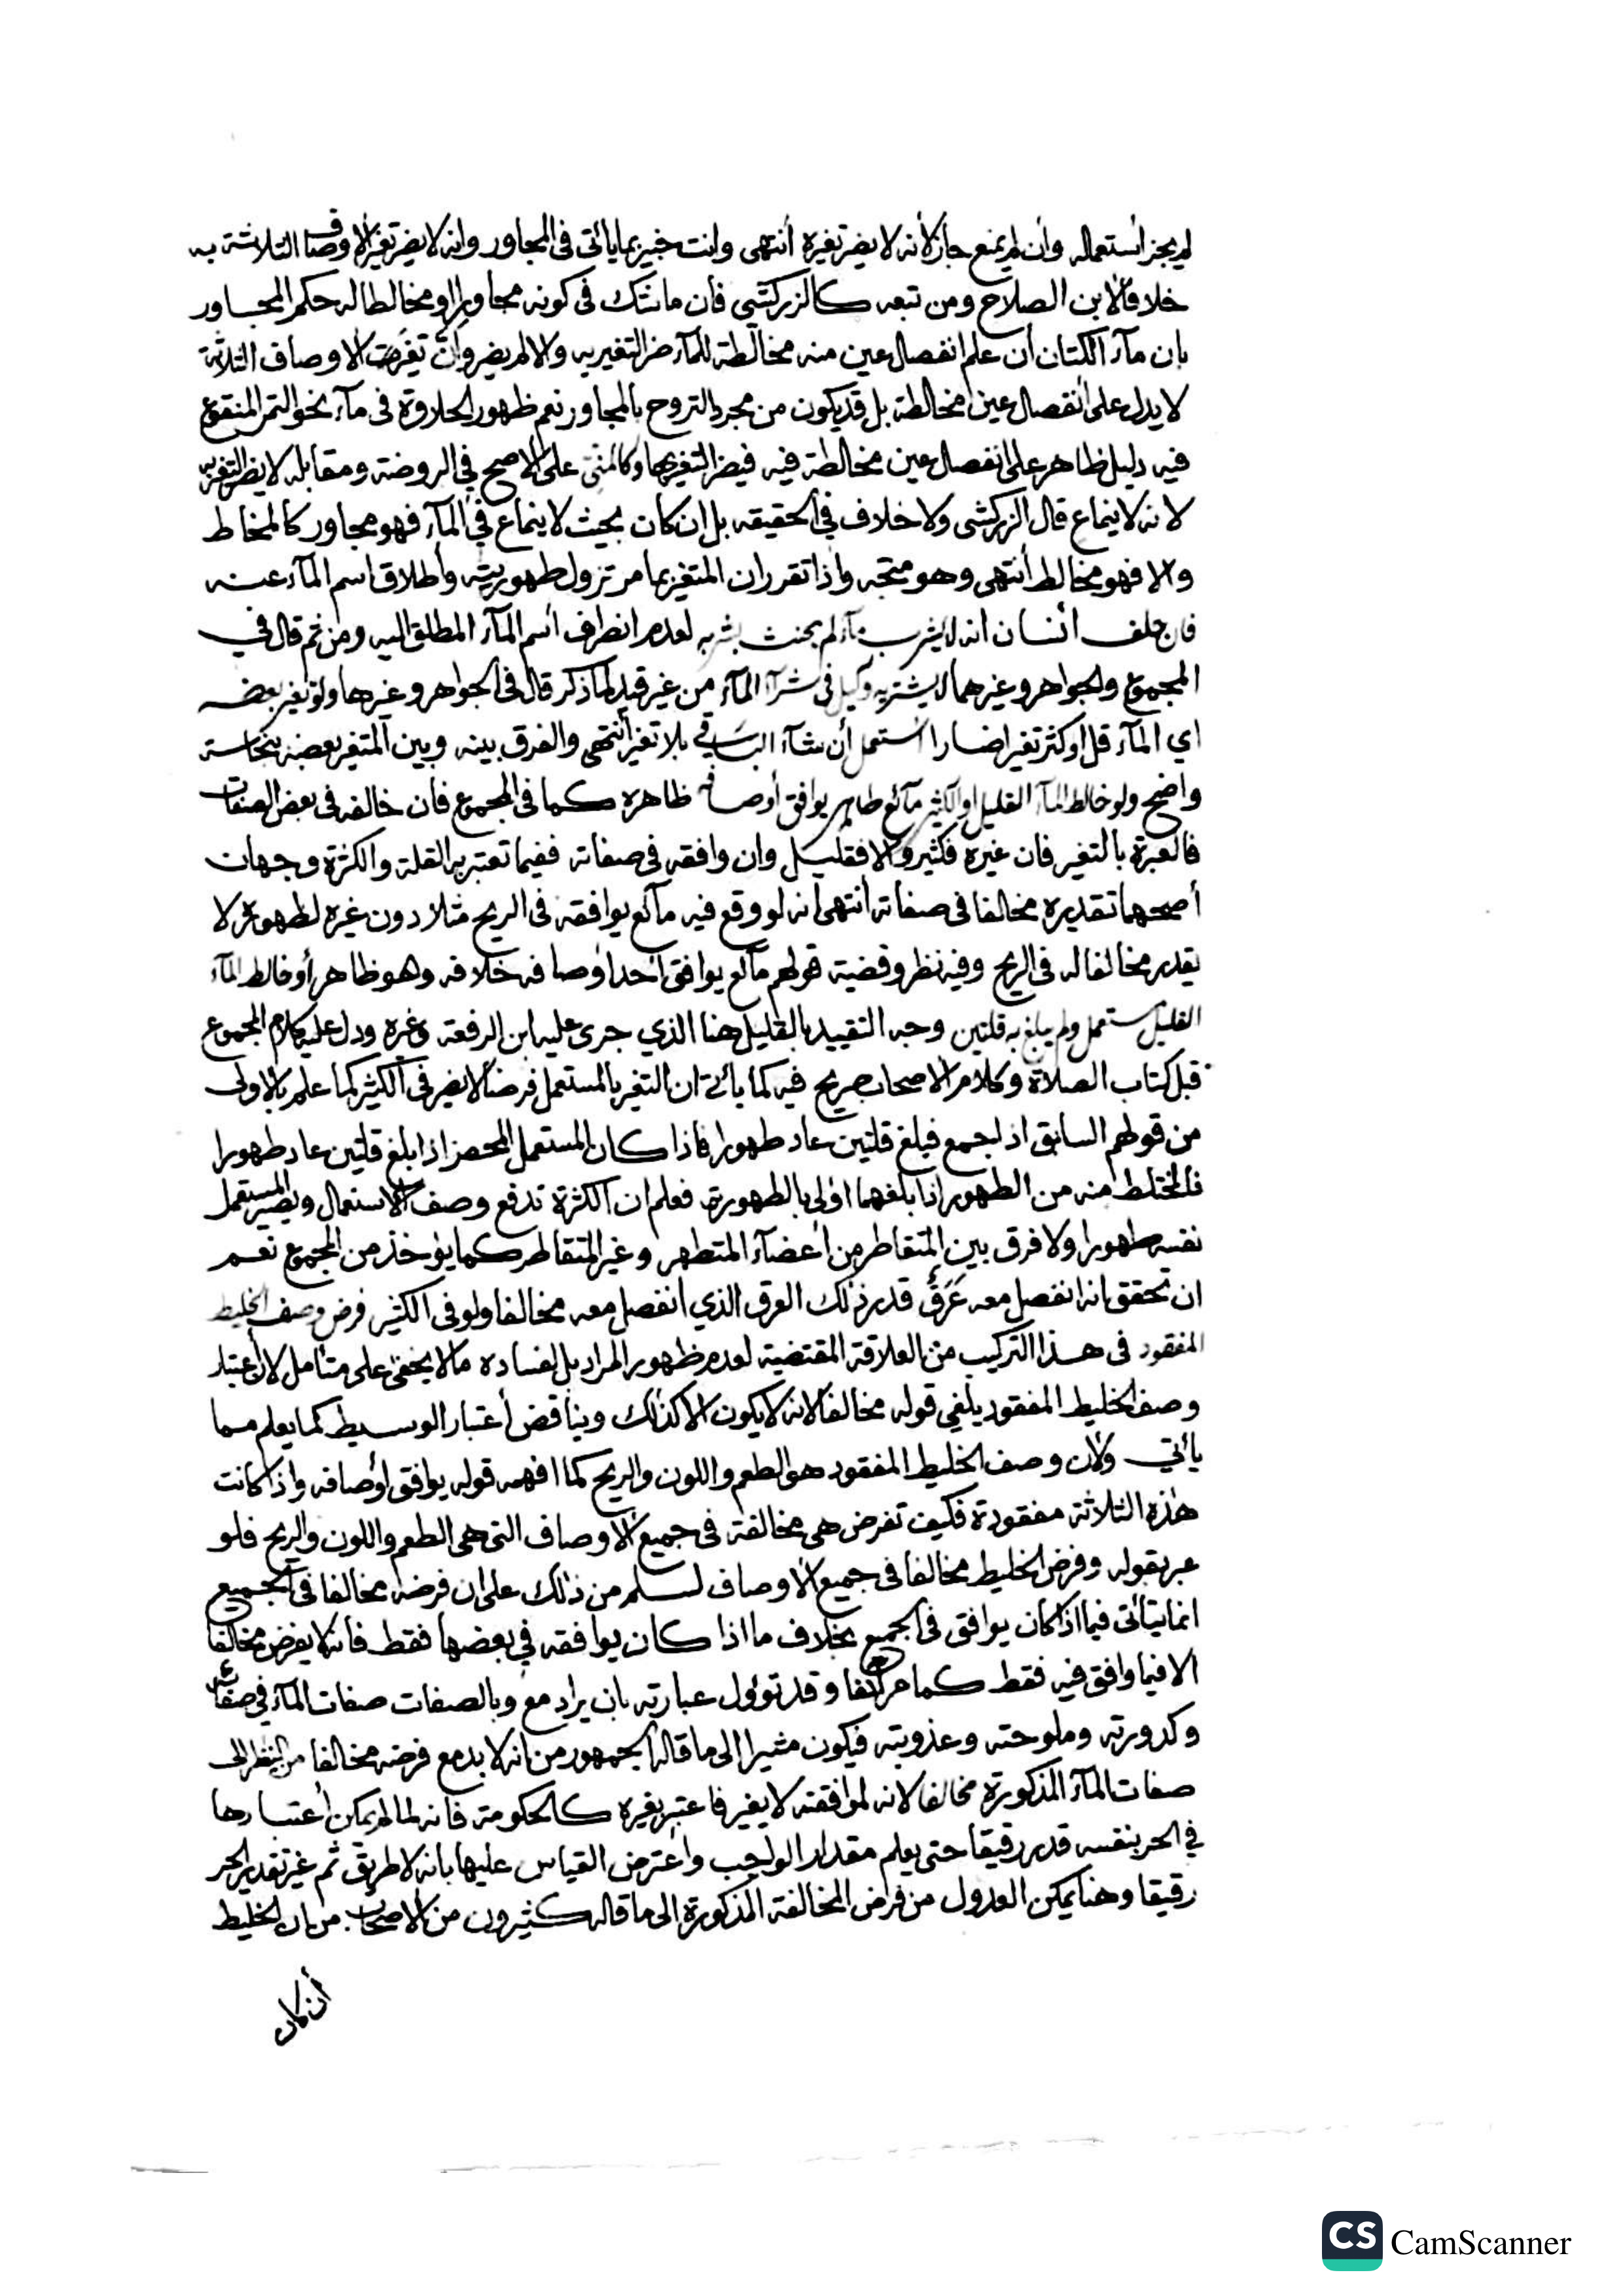 لم يجز أستعماله وأن لم يمنع جاز لأنه لا يضر تغيره أنتهى وانت خبير بما يأتى فى المجاور وانه لا يضر تغير الاوصاف الثلاثة به
خلافا لابن الصلاح ومن تبعه كالزركشي فأن ما نشك فى كونه مجاورا او مخالطا له حكم المجاور
بان مآء الكتان أن علم انفصال عين منه مخالطة للمآء ضر التغير به والا لم يضر وأن تغيرت الاوصاف الثلاثة
لا يدل على أنفصال عين مخالطة بل قد يكون من مجرد التروح بالمجاور نعم ظهور الحلاوة فى مآء نحو التمر المنقوع
فيه دليل ظاهر على أنفصال عين مخالطة فيه فيضر التغير بها وكالمني على الأصح في الروضة ومقابله لا يضر التغير به
لانه لا ينماع قال الزركشى ولا خلاف في الحقيقه بل إن كان بحيث لا ينماع في المآء فهو مجاور كالمخاط
والا فهو مخالط أنتهى وهو متجه واذا تقرر ان المتغير بما مر تزول طهوريته وأطلاق اسم المآء عنه
فان حلف أنسان انه لا يشرب مآء لم يحنث بشربه لعدم انصراف أسم المآء المطلق اليه ومن ثم قال في
المجموع والجواهر وغيرهما لا يشتريه وكيل فى شرآء المآء من غير قيد لما ذكر قال فى الجواهر وغيرها ولو تغير بعضه
اي المآء قل أو كثر تغيرا ضارا أستعمل أن شآء الباقي بلا تغير أنتهى والفرق بينه وبين المتغير بعضه بنجاسة
واضح ولو خالط المآء القليل او الكثير مآئع طاهر يوافق أوصافه ظاهره كما فى المجموع فأن خالفه فى بعض الصفات
فالعبرة بالتغير فان غيره فكثير والا فقليل وان وافقه فى صفاته ففيما تعتبر به القلة والكثرة وجهان
أصحهما تقديره مخالفا فى صفاته أنتهى أنه لو وقع فيه مآئع يوافقه فى الريح مثلا دون غيره لطهوره لا
يقدر مخالفا له فى الريح وفيه نظر وقضية قولهم مآئع يوافق أحد أوصافه خلافه وهو ظاهر أو خالط المآء
القليل مستعمل ولم يبلغ به قلتين وجه التقييد بالقليل هنا الذي جرى عليه ابن الرفعة وغيره ودل عليه كلام المجموع
قبل كتاب الصلاة وكلام الاصحاب صريح فيه كما يأتي ان التغير بالمستعمل فرضا لا يضر فى الكثير كما علم بالاولى
من قولهم السابق اذا جمع فبلغ قلتين عاد طهورا فأذا كان المستعمل المحض اذا بلغ قلتين عاد طهورا
فالمختلط منه من الطهور اذا بلغهما اولى بالطهورية فعلم ان الكثرة تدفع وصف الاستعمال ويصير المستعمل
نفسه طهورا ولا فرق بين المتقاطر من أعضآء المتطهر وغير المتقاطر كما يؤخذ من المجموع نعم
ان تحقق انه انفصل معه عَرَقٌ قدر ذلك العرق الذي أنفصل معه مخالفا ولو فى الكثير فرض وصف الخليط
المفقود فى هذا التركيب من العلاقة المقتضية لعدم ظهور المراد بل لفساده ما لا يخفى على متأمل لان أعتبار
وصف الخليط المفقود يلغي قوله مخالفا لانه لا يكون الا كذلك ويناقض أعتبار الوسيط كما يعلم مما
يأتي ولان وصف الخليط المفقود هو الطعم واللون والريح كما افهمه قوله يوافق أوصافه واذا كانت
هذه الثلاثة مفقودة فكيف تفرض هى مخالفة فى جميع الاوصاف التى هى الطعم واللون والريح فلو
عبر بقوله وفرض الخليط مخالفا فى جميع الاوصاف لسلم من ذلك على ان فرضه مخالفا فى الجميع
انما يتأتى فيما اذا كان يوافق فى الجميع بخلاف ما اذا كان يوافقه في بعضها فقط فأنه لا يفرض مخالفا
الا فيما وافق فيه فقط كما مر آنفا وقد تؤول عبارته بان يراد مع وبالصفات صفات المآء في صفائه
وكدورته وملوحته وعذوبته فيكون مشيرا الى ما قاله الجمهور من انه لا بد مع فرضه مخالفا من النظر الى
صفات المآء المذكورة مخالفا لانه لموافقته لا يغير فاعتبر بغيره كالحكومة فانه لما لم يمكن أعتبارها
في الحر بنفسه قدر رقيقا حتى يعلم مقدار الواجب وأعترض القياس عليها بانه لا طريق ثم غير تقدير الحر
رقيقا وهنا يمكن العدول من فرض المخالفة المذكورة الى ما قاله كثيرون من الاصحاب من ان الخليط
أن كان
CS CamScanner